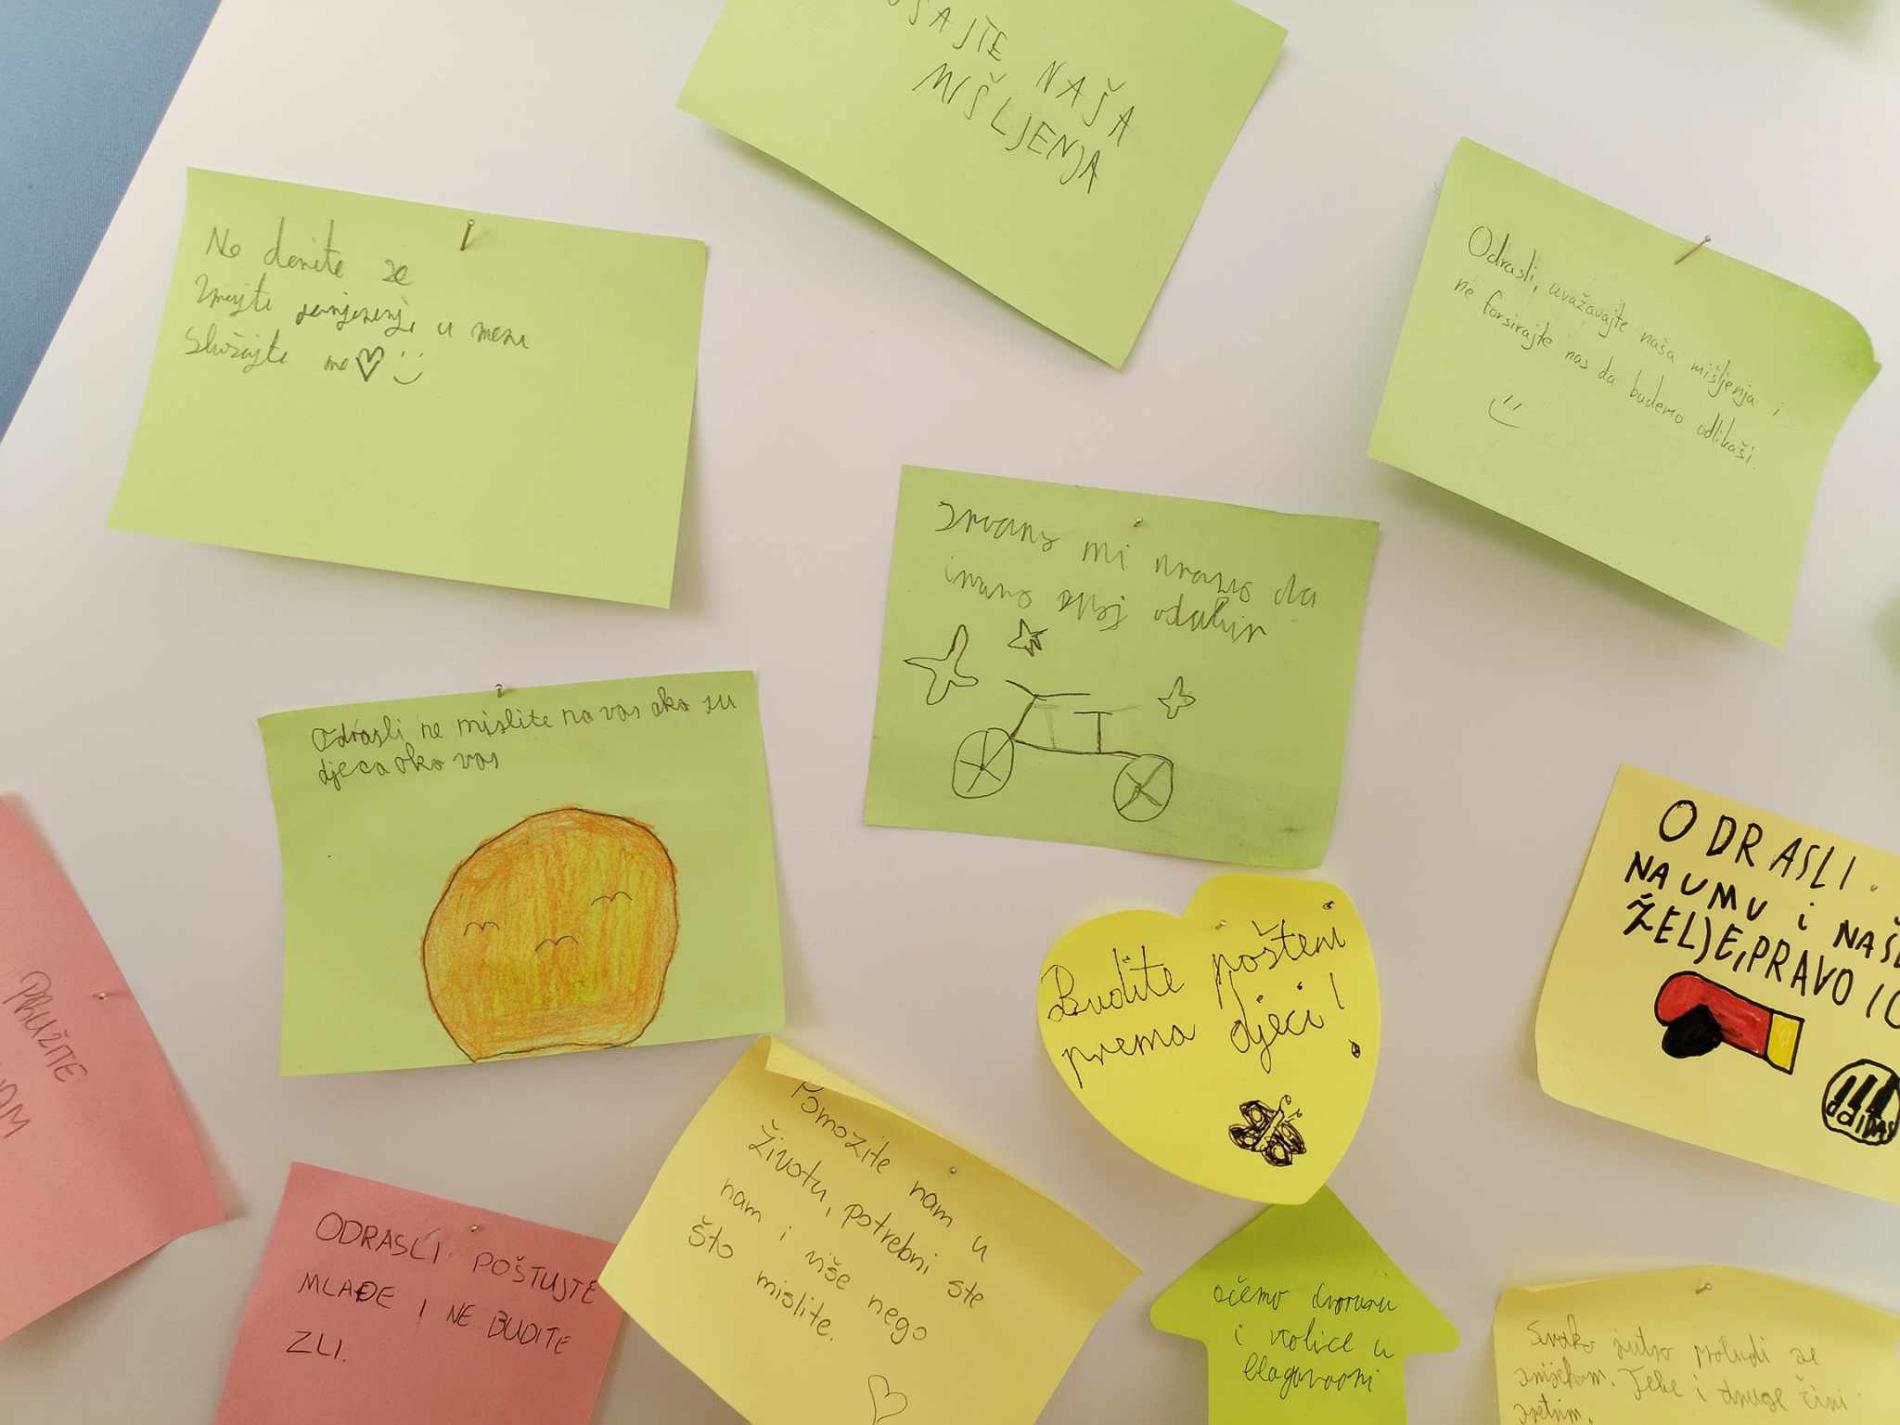 NAŠA
MIŠLJENJA
Ne derite se
Imajte povjerenje u mene
Slušajte me
Odrasli, uvažavajte naša mišljenja i
ne forsirajte nas da budemo odlikaši.
mi da
imamo
Odrasli ne mislite na vas ako su
djeca oko vas
ODRASLI
NA UMU i NAŠE
ŽELJE, PRAVO I
adidas
Budite pošteni
prema djeci!
PRUŽITE
Pomozite nam u
životu, potrebni ste
nam i više nego
što mislite.
ODRASLI POŠTUJTE
MLAĐE I NE BUDITE
ZLI.
oćemo dvoranu
i stolice u
blagovaoni
Svako jutro probudi se
smiješkom. Tebe i druge čini
sretnim.